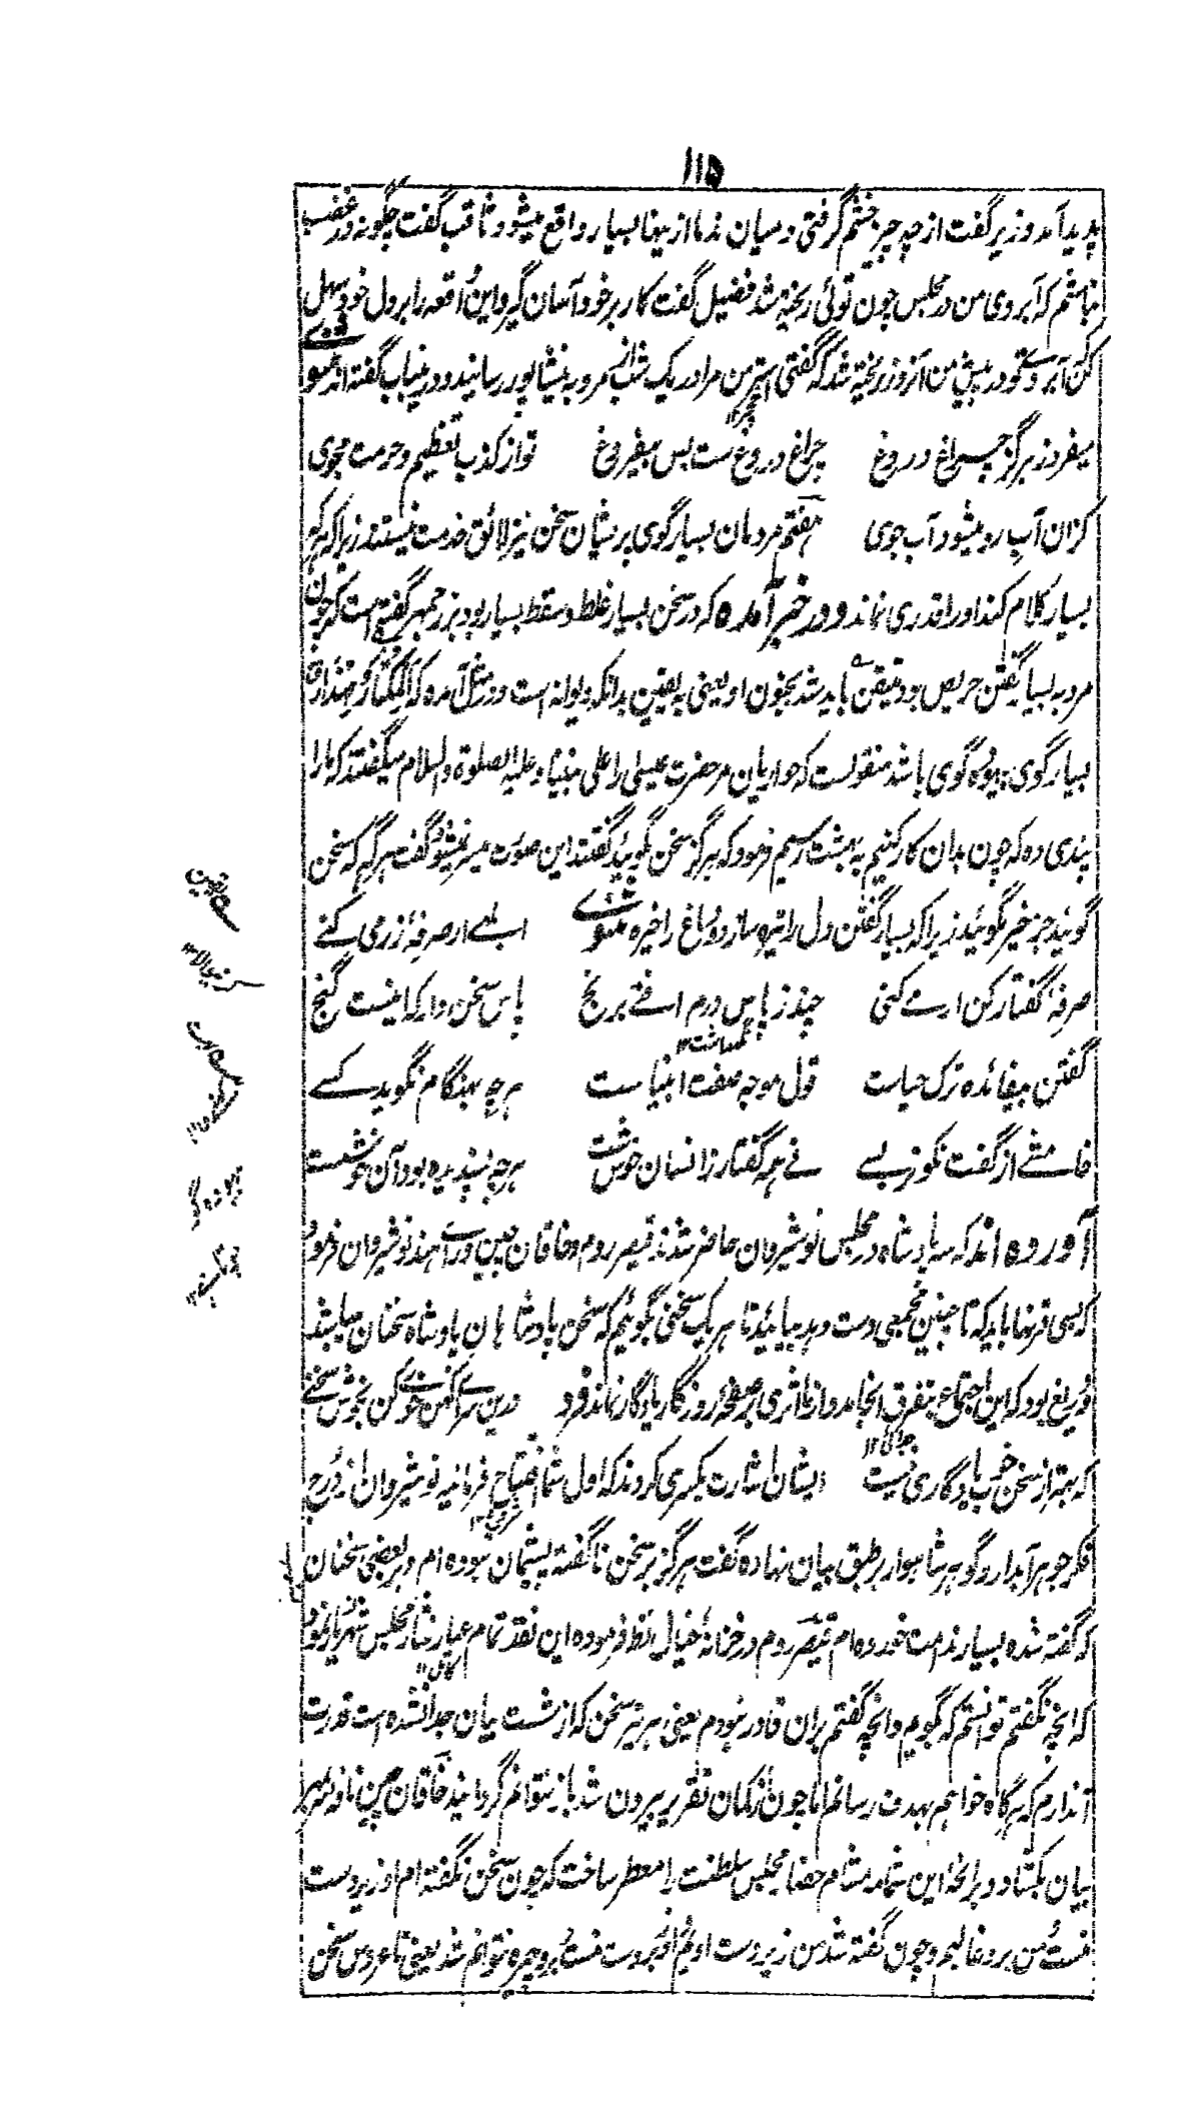 ۱۱۵
پدید آمد وزیر گفت از چه چیز خشم گرفتی و میان ندما ازینها بسیار واقع میشود ثاقب گفت چگونه در غضب
نباشم که آبروی من در مجلس چون توئی ریخته شد فضیل گفت کار بر خود آسان گیر و این واقعه را بر دل خود سهل
کن آبروی تو در پیش من آنروز ریخته شد که گفتی استر من مرا در یک شب از مرو به نیشاپور رسانید و درینباب گفته اند مثنوی
میفروز هرگز چراغ دروغ چراغ دروغ ست بس بیفروغ تو از کذب تعظیم و حرمت مجوی
کزان آب رو میشود آب جوی هفتم مردمان بسیار گوی پریشان سخن نیز لائق خدمت نیستند زیرا که هر که
بسیار کلام کند او را قدری نماند و در خبر آمده که در سخن بسیار غلط و سقط بسیار بود بزرجمهر گفته است که چون
مرد به بسیار گفتن حریص بود متیقن باید شد بجنون او یعنی به یقین بدانکه دیوانه است و در مثل آمده که المکثار مهذار
بسیار گوی بیهوده گوی باشد منقولست که حواریان مر حضرت عیسی را علی نبینا و علیه الصلوة والسلام میگفتند که ما را
پندی ده که چون بدان کار کنیم به بهشت رسیم فرمود که هرگز سخن نگوئید گفتند این صورت میسر نمیشود گفت هر گه که سخن
گوئید جز خیر نگوئید زیرا که بسیار گفتن دل را تیره سازد و دماغ را خیره مثنوی ار صرفه زر می کنے
صرفه گفتار کن ار می کنی چند ز پاس درم افتے برنج پاس سخن دار که اینست گنج
نگهداشت ۱۲
گفتن بیفائده ترک حیاست قول موجه صفت انبیاست هر چه بهنگام نگوید کسے
خامشے از گفت نکوتر بسے نے همه گفتار ز انسان خوش ست هر چه پسندیده بود آن خوش ست
آورده اند که سه پادشاه در مجلس نوشیروان حاضر شدند قیصر روم و خاقان چین و رای هند نوشیروان فرمود
که بسی قرنها باید که تا چنین مجمعی دست دهد بیائید تا هر یک سخنی بگوئیم که سخن پادشاهان پادشاه سخنان میباشد
و دریغ بود که این اجتماع بتفرق انجامد و از ما اثری بر صفحهٔ روزگار یادگار نماند فرد درین سرای کهن کن بخوش سخنے
که بهتر از سخن خوب یادگاری نیست ایشان اشارت بکسری کردند که اول شما افتتاح فرمائید نوشیروان از درج
فکر جوهر آبدار و گوهر شاهوار بر طبق بیان نهاده گفت هرگز بر سخن ناگفته پشیمان نبوده ام و بر بعضی سخنان
که گفته شده بسیار ندامت خورده ام قیصر روم در خزانهٔ خیال نظر فرموده این نقد تمام عیار نثار مجلس شهریار نمود
کامل ۱۲
که انچه نگفتم توانستم که بگویم و انچه گفتم بران قادر نبودم یعنی هر تیر سخن که از شست بیان جدا نشده است قدرت
آندارم که هرگاه خواهم بهدف رسانم اما چون از کمان تقریر بیرون شد باز نتوانم گردانید خاقان چین نافه سر بمهر
بیان بکشاد و برائحهٔ این شمامه مشام حضار مجلس سلطنت را معطر ساخت که چون سخن نگفته ام او زیر دست
منست و من برو غالبم و چون گفته شد من زیر دست اویم او زبردست منست برو چیره نتوانم شد یعنی تا عروس سخن